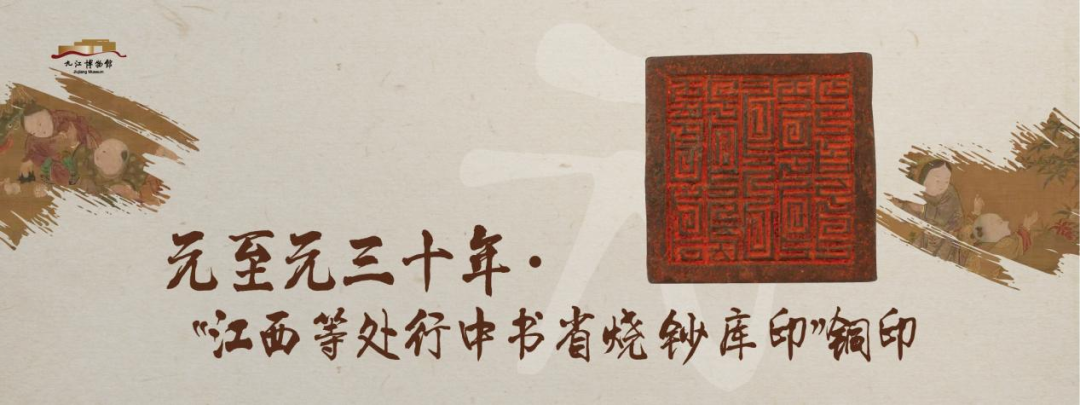 九江博物馆
Jiujiang Museum
元
元至元三十年·
“江西等处行中书省烧钞库印”铜印